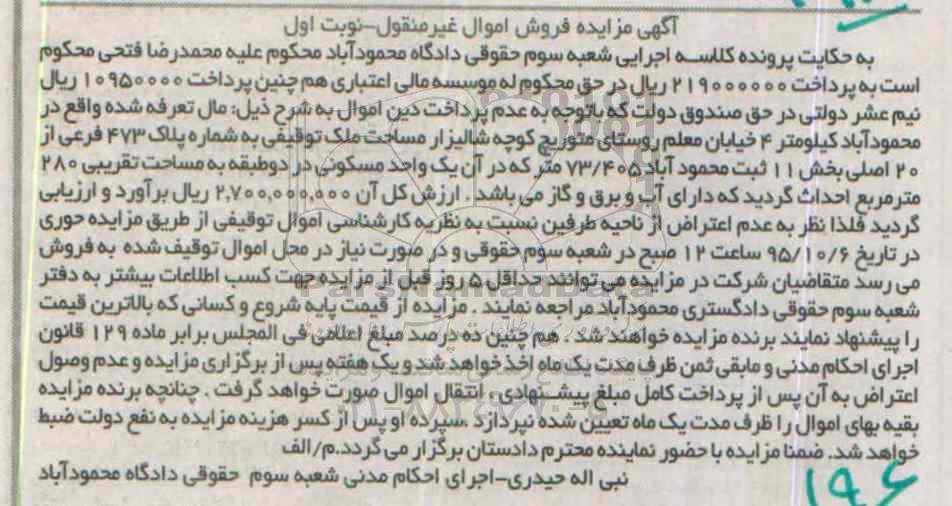 آگهی مزایده فروش اموال غیرمنقول-نوبت اول
به حکایت پرونده کلاسه اجرایی شعبه سوم حقوقی دادگاه محمودآباد محکوم علیه محمدرضا فتحی محکوم
است به پرداخت ۲۱۹۰۰۰۰۰۰ ریال در حق محکوم له موسسه مالی اعتباری هم چنین پرداخت ۱۰۹۵۰۰۰۰ ریال
نیم عشر دولتی در حق صندوق دولت که باتوجه به عدم پرداخت دین اموال به شرح ذیل: مال تعرفه شده واقع در
محمودآباد کیلومتر ۴ خیابان معلم روستای متوریج کوچه شالیزار مساحت ملک توقیفی به شماره پلاک ۴۷۳ فرعی از
۲۰ اصلی بخش ۱۱ ثبت محمود آباد ۷۳/۴۰۵ متر که در آن یک واحد مسکونی در دوطبقه به مساحت تقریبی ۲۸۰
مترمربع احداث گردید که دارای آب و برق و گاز می باشد . ارزش کل آن ۲,۷۰۰,۰۰۰,۰۰۰ ریال برآورد و ارزیابی
گردید فلذا نظر به عدم اعتراض از ناحیه طرفین نسبت به نظریه کارشناسی اموال توقیفی از طریق مزایده حوری
در تاریخ ۹۵/۱۰/۶ ساعت ۱۲ صبح در شعبه سوم حقوقی و در صورت نیاز در محل اموال توقیف شده به فروش
می رسد متقاضیان شرکت در مزایده می توانند حداقل ۵ روز قبل از مزایده جهت کسب اطلاعات بیشتر به دفتر
شعبه سوم حقوقی دادگستری محمودآباد مراجعه نمایند . مزایده از قیمت پایه شروع و کسانی که بالاترین قیمت
را پیشنهاد نمایند برنده مزایده خواهند شد . هم چنین ده درصد مبلغ اعلامی فی المجلس برابر ماده ۱۲۹ قانون
اجرای احکام مدنی و مابقی ثمن ظرف مدت یک ماه اخذ خواهد شد و یک هفته پس از برگزاری مزایده و عدم وصول
اعتراض به آن پس از پرداخت کامل مبلغ پیشنهادی ، انتقال اموال صورت خواهد گرفت . چنانچه برنده مزایده
بقیه بهای اموال را ظرف مدت یک ماه تعیین شده نپردازد .سپرده او پس از کسر هزینه مزایده به نفع دولت ضبط
خواهد شد. ضمنا مزایده با حضور نماینده محترم دادستان برگزار می گردد.م/الف
نبی اله حیدری-اجرای احکام مدنی شعبه سوم حقوقی دادگاه محمودآباد
۱۹۶